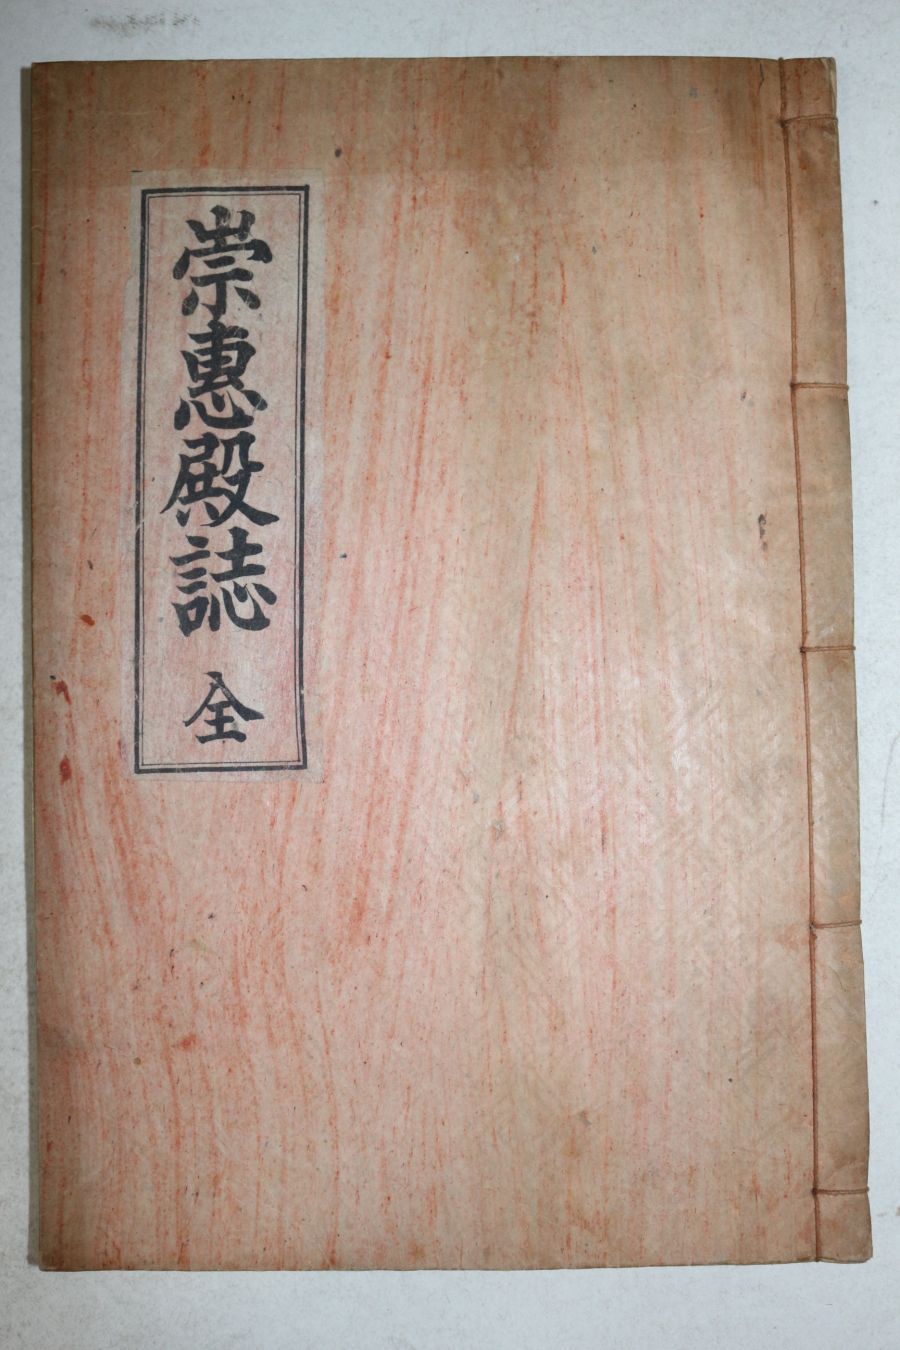 崇惠殿誌 全